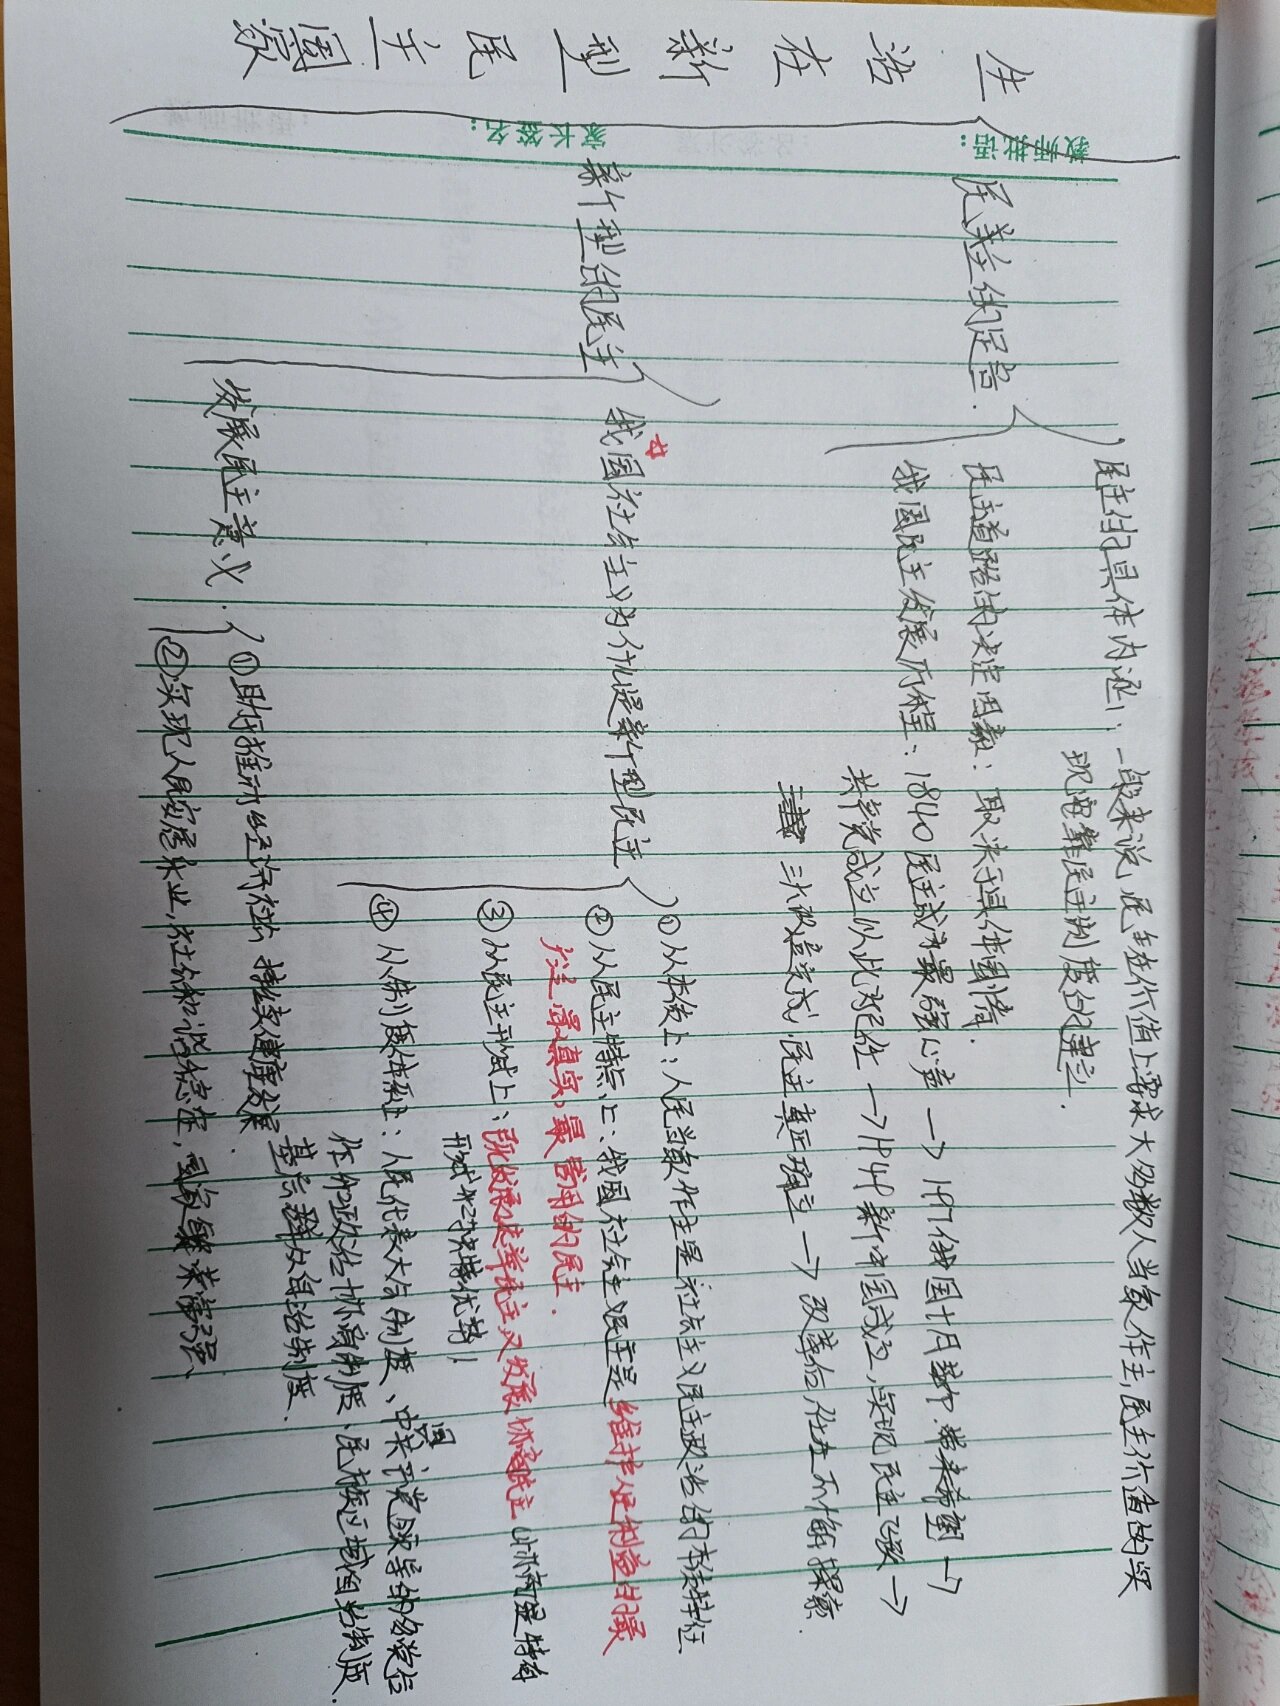 生活在新型民主国家
教师批语：
家长签名：
民主的足音
民主的具体内涵：一般来说，民主在价值上要求大多数人当家作主，民主价值的实
现要靠民主制度的建立．
民主道路的决定因素：取决于具体国情．
我国民主发展历程：1840民主成为最强心声→1917俄国十月革命．带来希望→
共产党成立以此为己任→1949新中国成立，实现民主飞跃→
三大改造完成，民主真正确立→改革后，仕在不懈探索．
新型的民主
我国社会主义为什么是新型民主
①从本质上：人民当家作主是社会主义民主政治的本质特征
②从民主特点上：我国社会主义民主是维护人民利益的最
广泛．最真实．最管用的民主．
③从民主形式上：既发展选举民主又发展协商民主 协商是特有
形式和独特优势！
④从制度保证：人民代表大会制度、中国共产党领导的多党合
作和政治协商制度、民族区域自治制度．
基层群众自治制度．
发展民主意义．
①助于推动经济社会持续健康发展
②实现人民安居乐业，社会和谐稳定，国家繁荣富强、